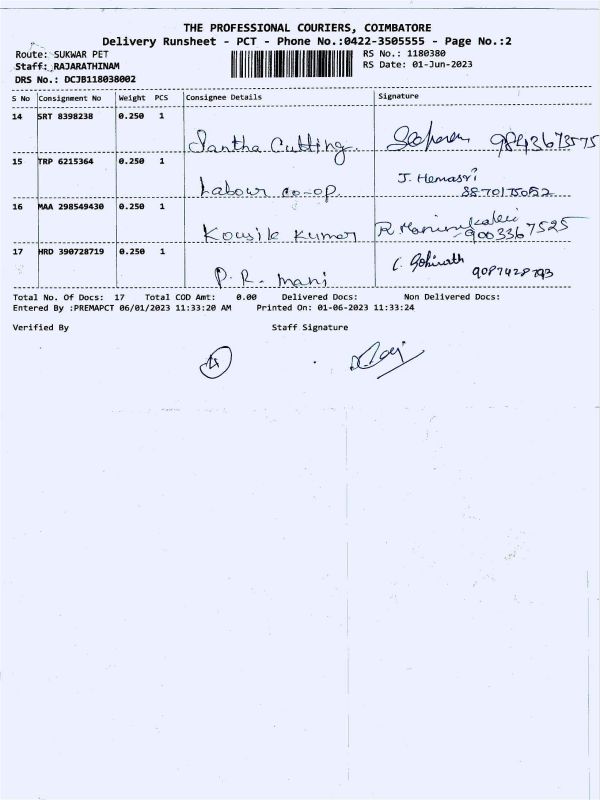 THE PROFESSIONAL COURIERS, COIMBATORE
Delivery Runsheet - PCT - Phone No.:0422-3505555 - Page No.:2
Route: SUKWAR PET RS No.: 1180380
Staff: RAJARATHINAM RS Date: 01-Jun-2023
DRS No.: DCJB118038002
S No Consignment No Weight PCS Consignee Details Signature
14 SRT 8398238 0.250 1
Santha Cutting 9843673575
15 TRP 6215364 0.250 1
J. Hemasri
Labour co-op 8870175052
16 MAA 298549430 0.250 1
Kousik Kumar 9003367525
17 HRD 390728719 0.250 1
C. Gohinath
P. R. mani 9087428793
Total No. Of Docs: 17 Total COD Amt: 0.00 Delivered Docs: Non Delivered Docs:
Entered By :PREMAPCT 06/01/2023 11:33:20 AM Printed On: 01-06-2023 11:33:24
Verified By Staff Signature